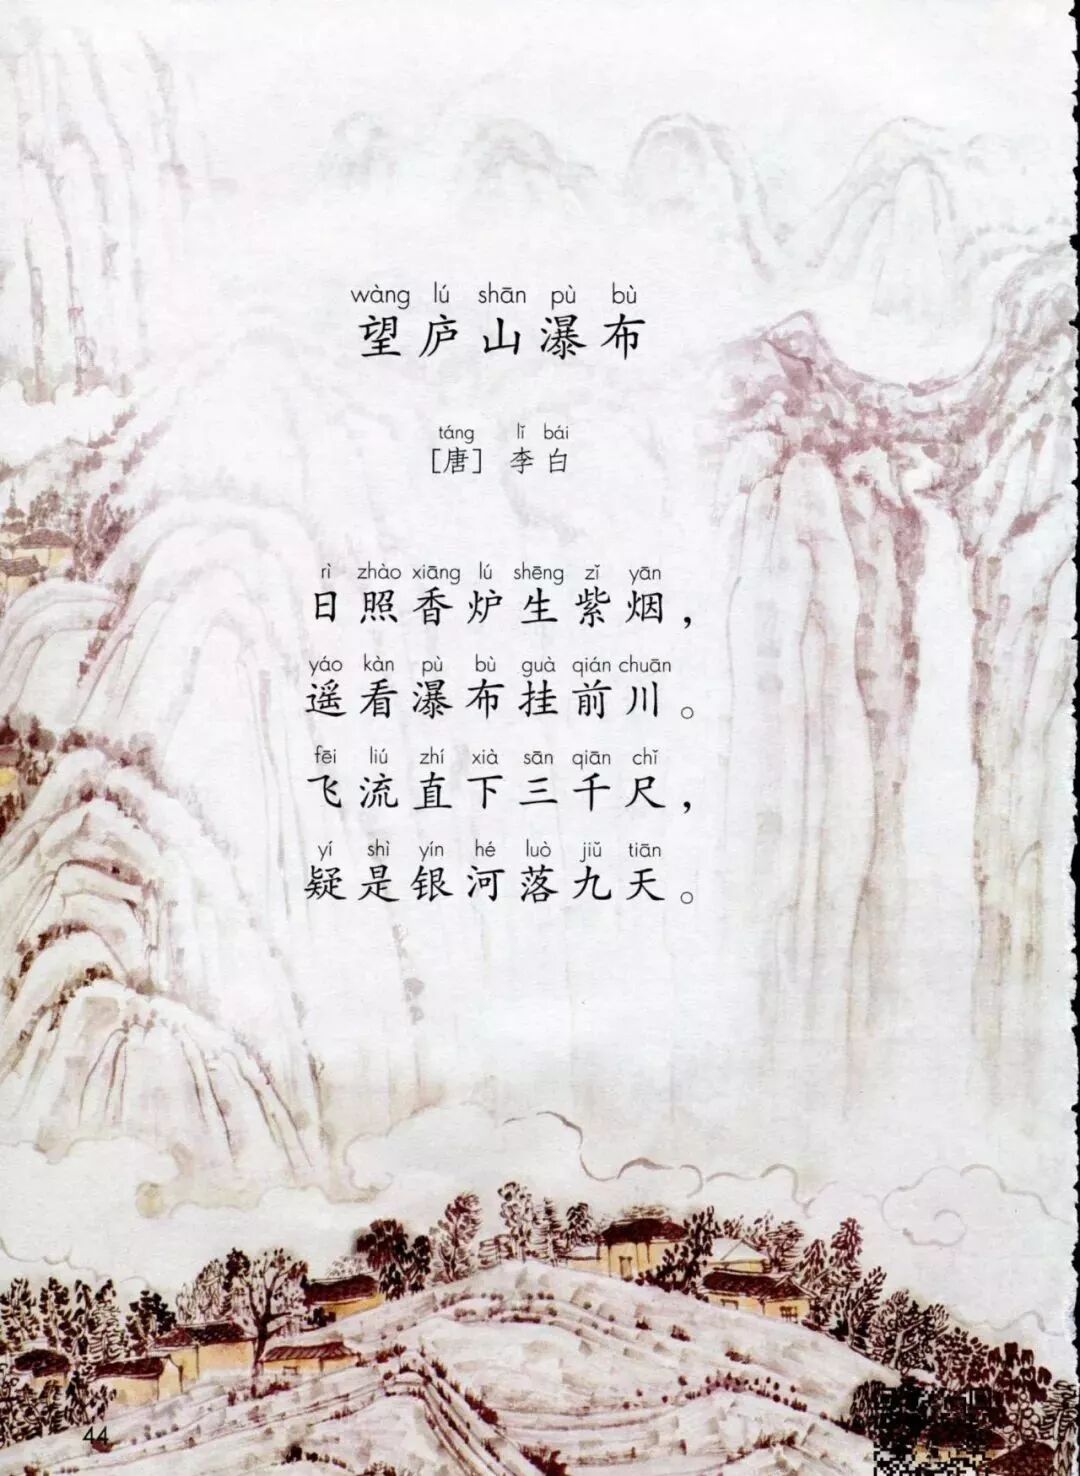 wàng lú shān pù bù
望庐山瀑布
táng lǐ bái
[唐] 李白
rì zhào xiāng lú shēng zǐ yān
日照香炉生紫烟，
yáo kàn pù bù guà qián chuān
遥看瀑布挂前川。
fēi liú zhí xià sān qiān chǐ
飞流直下三千尺，
yí shì yín hé luò jiǔ tiān
疑是银河落九天。
44